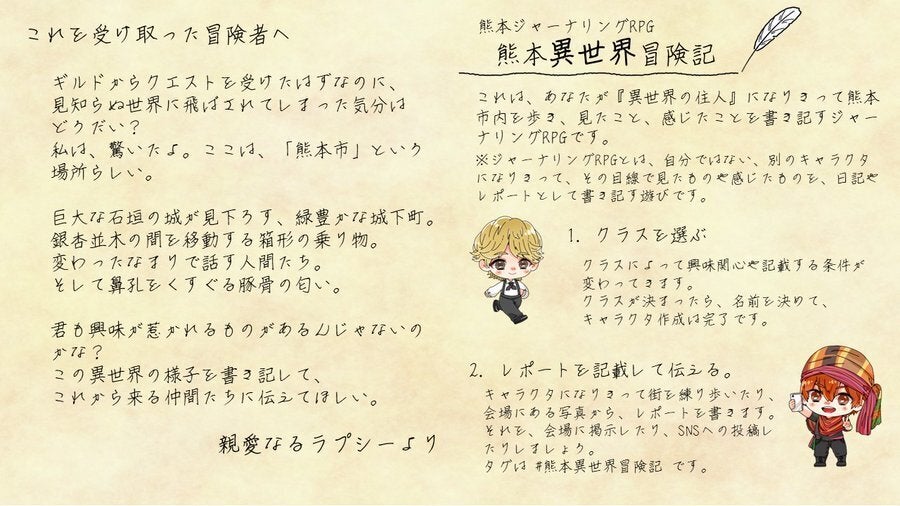 これを受け取った冒険者へ
ギルドからクエストを受けたはずなのに、
見知らぬ世界に飛ばされてしまった気分は
どうだい？
私は、驚いたよ。ここは、「熊本市」という
場所らしい。
巨大な石垣の城が見下ろす、緑豊かな城下町。
銀杏並木の間を移動する箱形の乗り物。
変わったなまりで話す人間たち。
そして鼻孔をくすぐる豚骨の匂い。
君も興味が惹かれるものがあるんじゃないの
かな？
この異世界の様子を書き記して、
これから来る仲間たちに伝えてほしい。
親愛なるラプシーより
熊本ジャーナリングRPG
熊本異世界冒険記
これは、あなたが『異世界の住人』になりきって熊本
市内を歩き、見たこと、感じたことを書き記すジャー
ナリングRPGです。
※ジャーナリングRPGとは、自分ではない、別のキャラクタ
になりきって、その目線で見たものや感じたものを、日記や
レポートとして書き記す遊びです。
1. クラスを選ぶ
クラスによって興味関心や記載する条件が
変わってきます。
クラスが決まったら、名前を決めて、
キャラクタ作成は完了です。
2. レポートを記載して伝える。
キャラクタになりきって街を練り歩いたり、
会場にある写真から、レポートを書きます。
それを、会場に掲示したり、SNSへの投稿し
たりしましょう。
タグは #熊本異世界冒険記 です。